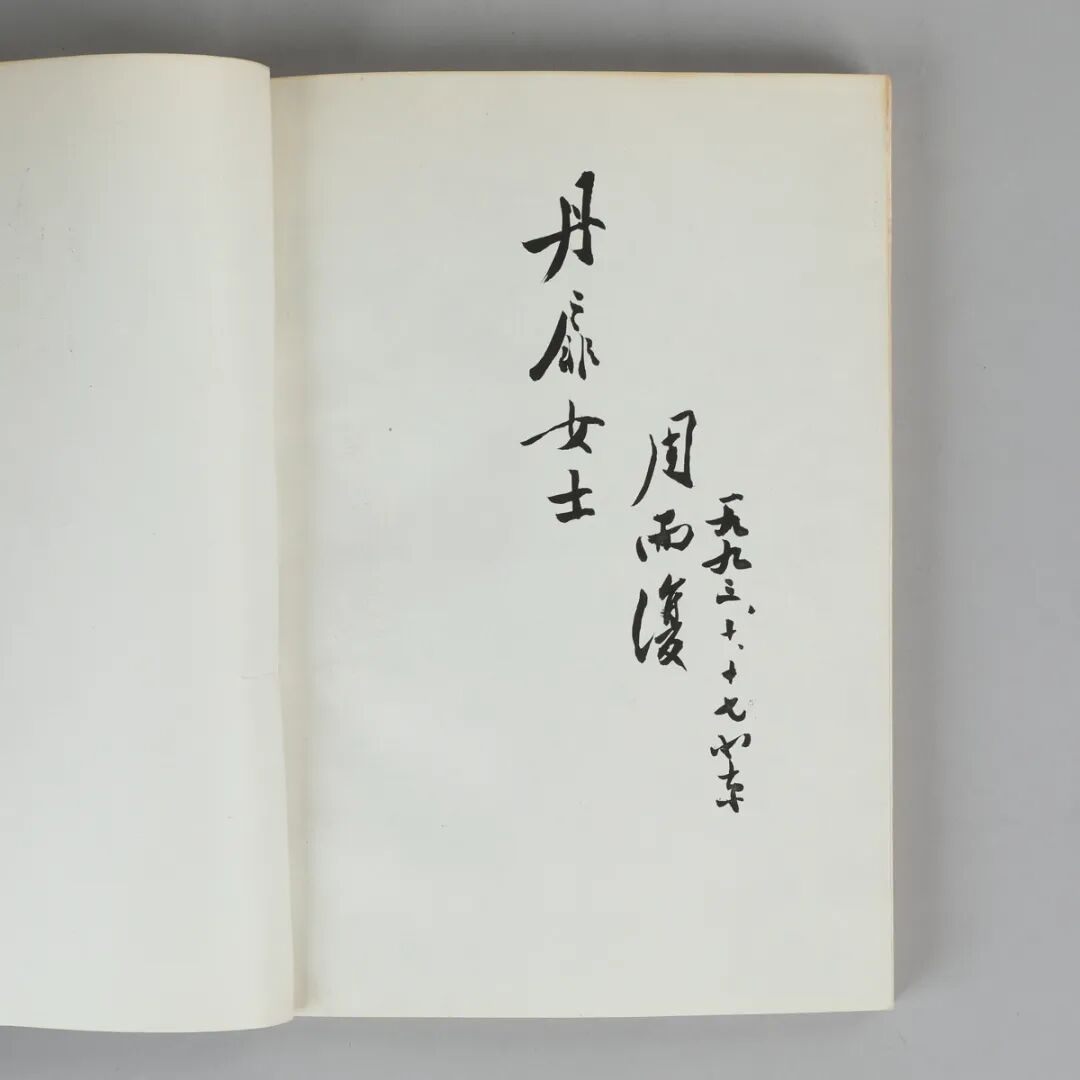 丹扉女士
周而復
一九九三、十、十七北京